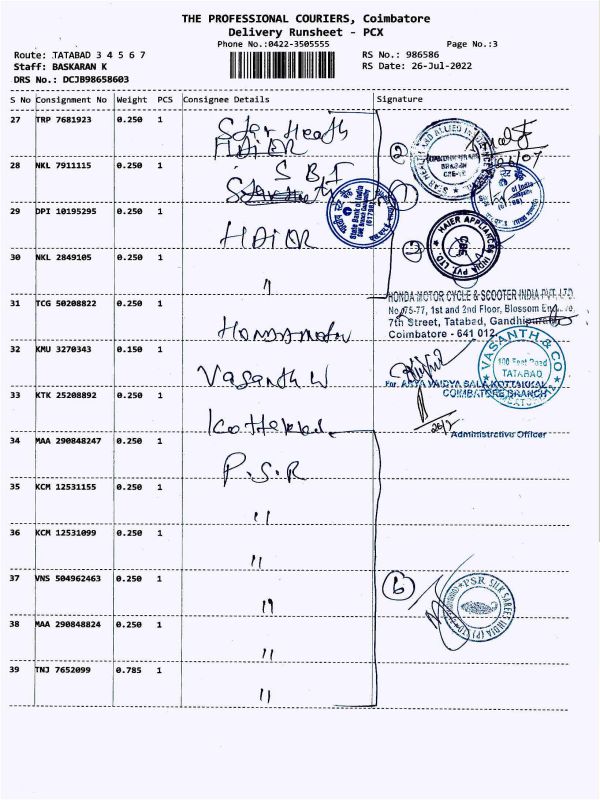 THE PROFESSIONAL COURIERS, Coimbatore
Delivery Runsheet - PCX
Phone No.:0422-3505555
Page No.:3
Route: TATABAD 3 4 5 6 7
Staff: BASKARAN K
DRS No.: DCJB98658603
RS No.: 986586
RS Date: 26-Jul-2022
S No Consignment No Weight PCS Consignee Details Signature
27 TRP 7681923 0.250 1 Star Health
HAIER
28 NKL 7911115 0.250 1 S B I
29 DPI 10195295 0.250 1 HAIER
30 NKL 2849105 0.250 1 "
31 TCG 50208822 0.250 1 Honda Motor
32 KMU 3270343 0.150 1 Vasanth
33 KTK 25208892 0.250 1 Kottakkal
34 MAA 290848247 0.250 1 P.S.R
35 KCM 12531155 0.250 1 "
36 KCM 12531099 0.250 1 "
37 VNS 504962463 0.250 1 "
38 MAA 290848824 0.250 1 "
39 TNJ 7652099 0.785 1 "
2
1
State Bank of India
HAIER APPLIANCES INDIA PVT. LTD.
CBE
HONDA MOTOR CYCLE & SCOOTER INDIA PVT. LTD.
No.075-77, 1st and 2nd Floor, Blossom
7th Street, Tatabad,
Coimbatore - 641 012.
VASANTH & CO
100 Feet Road
TATABAD
For ARYA VAIDYA SALA KOTTAKKAL
COIMBATORE BRANCH
26/7
Administrative Officer
6
PSR SILK SAREES INDIA (P) LTD